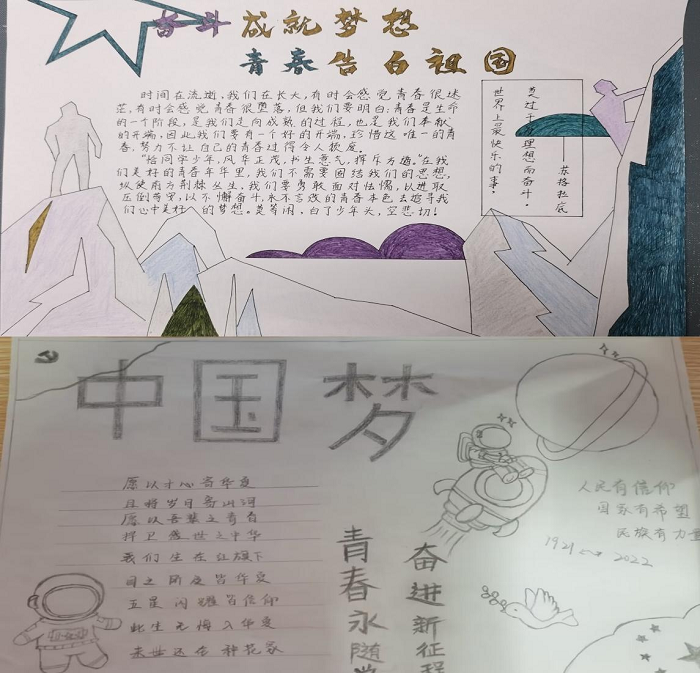 奋斗成就梦想
青春告白祖国
时间在流逝,我们在长大,有时会感觉青春很迷
茫,有时会感觉青春很堕落,但我们要明白:青春是生命
的一个阶段,是我们走向成熟的过程,也是我们奉献
的开端,因此我们要有一个好的开端,珍惜这唯一的青
春,努力不让自己的青春过得令人极度。
"恰同学少年,风华正茂,书生意气,挥斥方遒。"在我
们是好的青春年华里,我们不需要固结我们的思想,
纵使前方荆棘丛生,我们要勇敢面对怯懦,以进取
压倒苟安,以不懈奋斗,永不言败的青春本色去追寻我
们心中是好的梦想。莫等闲,白了少年头,空悲切!
世界上最快乐的事,
莫过于理想而奋斗。
——苏格拉底
中国梦
愿以寸心寄华夏
且将岁月寄山河
愿以吾辈之青春
捍卫盛世之中华
我们生在红旗下
目之所及皆华夏
五星闪耀皆信仰
此生无悔入华夏
来世还在种花家
青春永随党
奋进新征程
人民有信仰
国家有希望
民族有力量
1921 2022